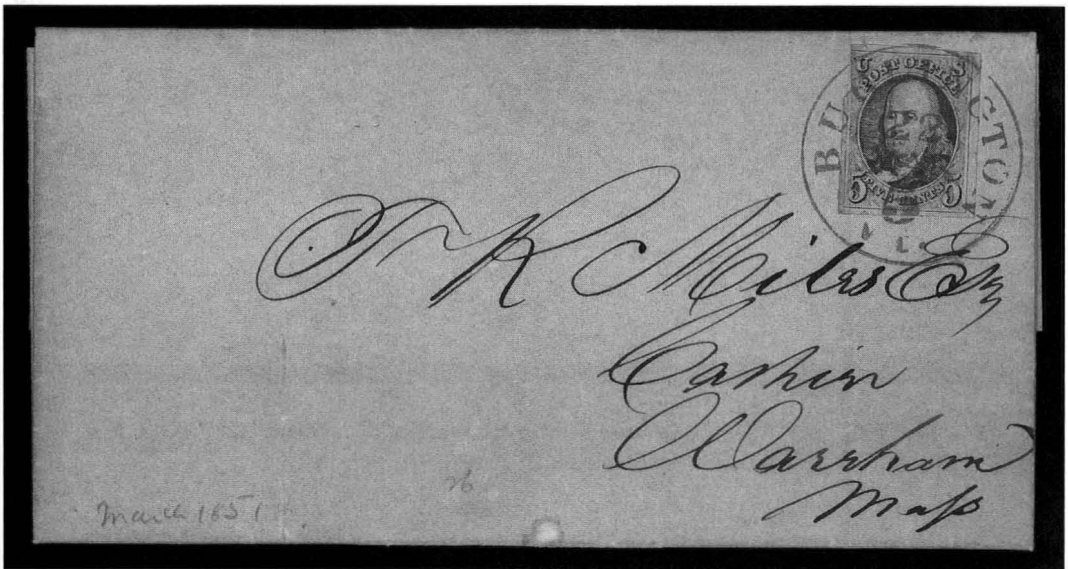 U S
POST OFFICE
5 FIVE CENTS 5
BU CTON
T R Miles Esq
Cashier
Wareham
Mass
26
March 1851